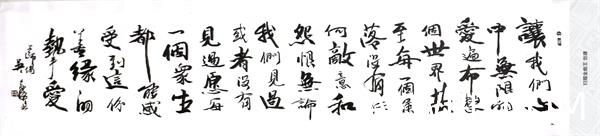 讓我們心
中無限的
愛遍布整
個世界甚
至每一個角
落沒有任
何敵意和
怨恨無論
我們見過
或者沒有
見過願每
一個眾生
都能感
受到這份
善緣的
摯愛
吳
扫描全能王 创建